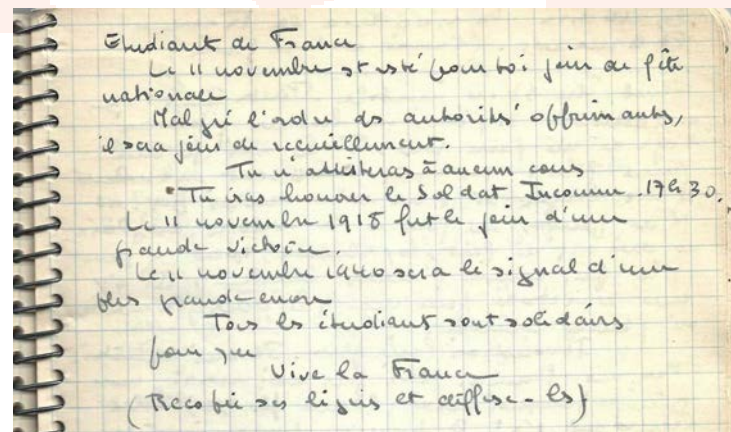 Etudiant de France
Le 11 novembre est resté pour toi jour de fête
nationale
Malgré l'ordre des autorités opprimantes,
il sera jour de recueillement.
Tu n'assisteras à aucun cours
Tu iras honorer le Soldat Inconnu. 17h30.
Le 11 novembre 1918 fut le jour d'une
grande victoire.
Le 11 novembre 1940 sera le signal d'une
plus grande encore
Tous les étudiant sont solidaires
pour que
Vive la France
(Recopie ces lignes et diffuse-les)